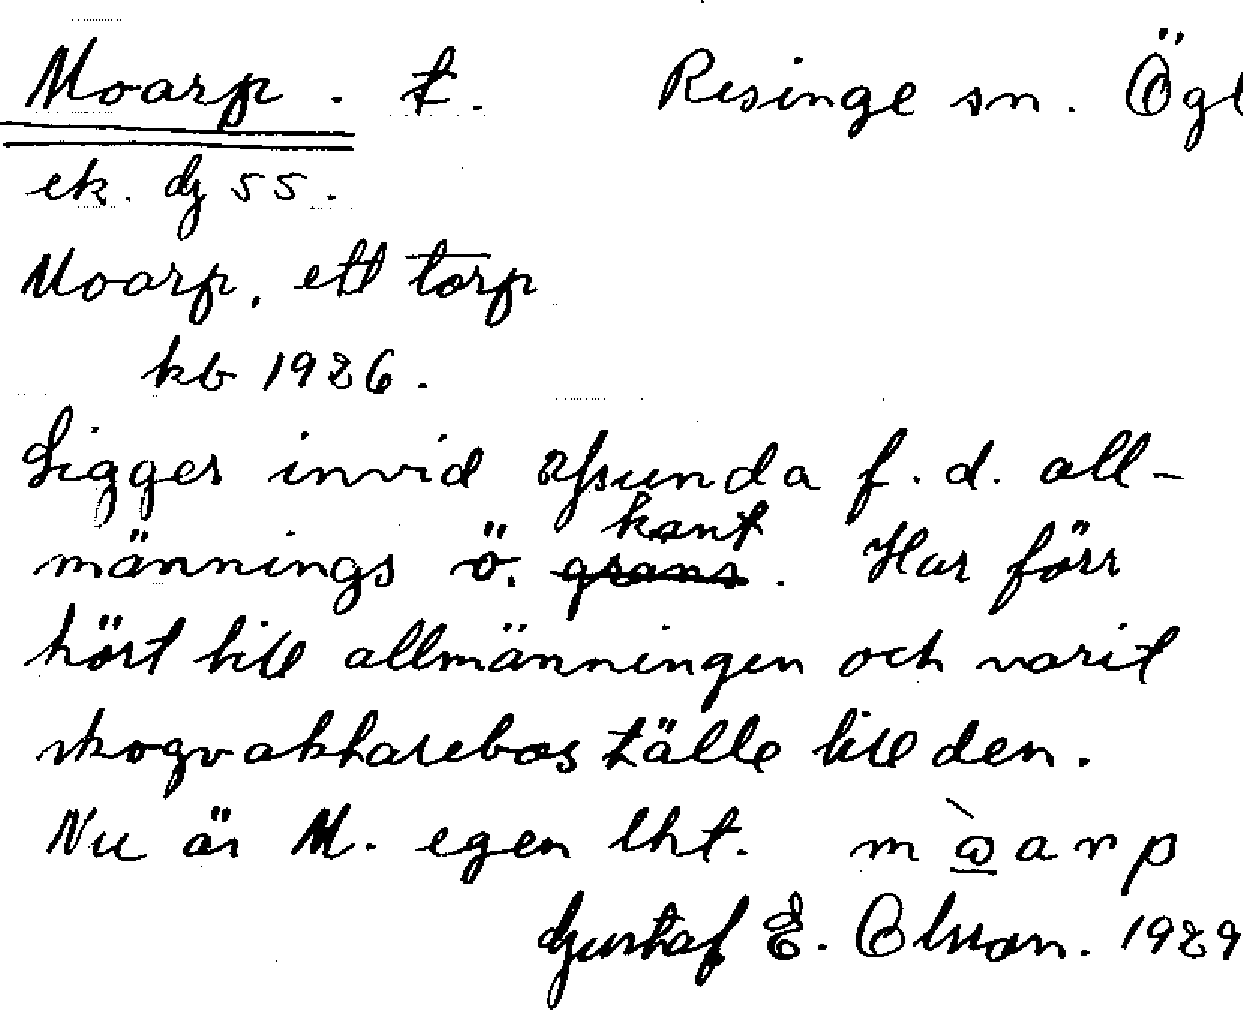 Moarp. t. Risinge sn. Ögl
ek. dg 55.
Moarp, ett torp
kb 1926.
Ligger invid Ysunda f. d. all-
männings ö. gräns kant. Har förr
hört till allmänningen och varit
skogvaktareboställe till den.
Nu är M. egen lht. mòarp
Gustaf E. Olsson. 1929